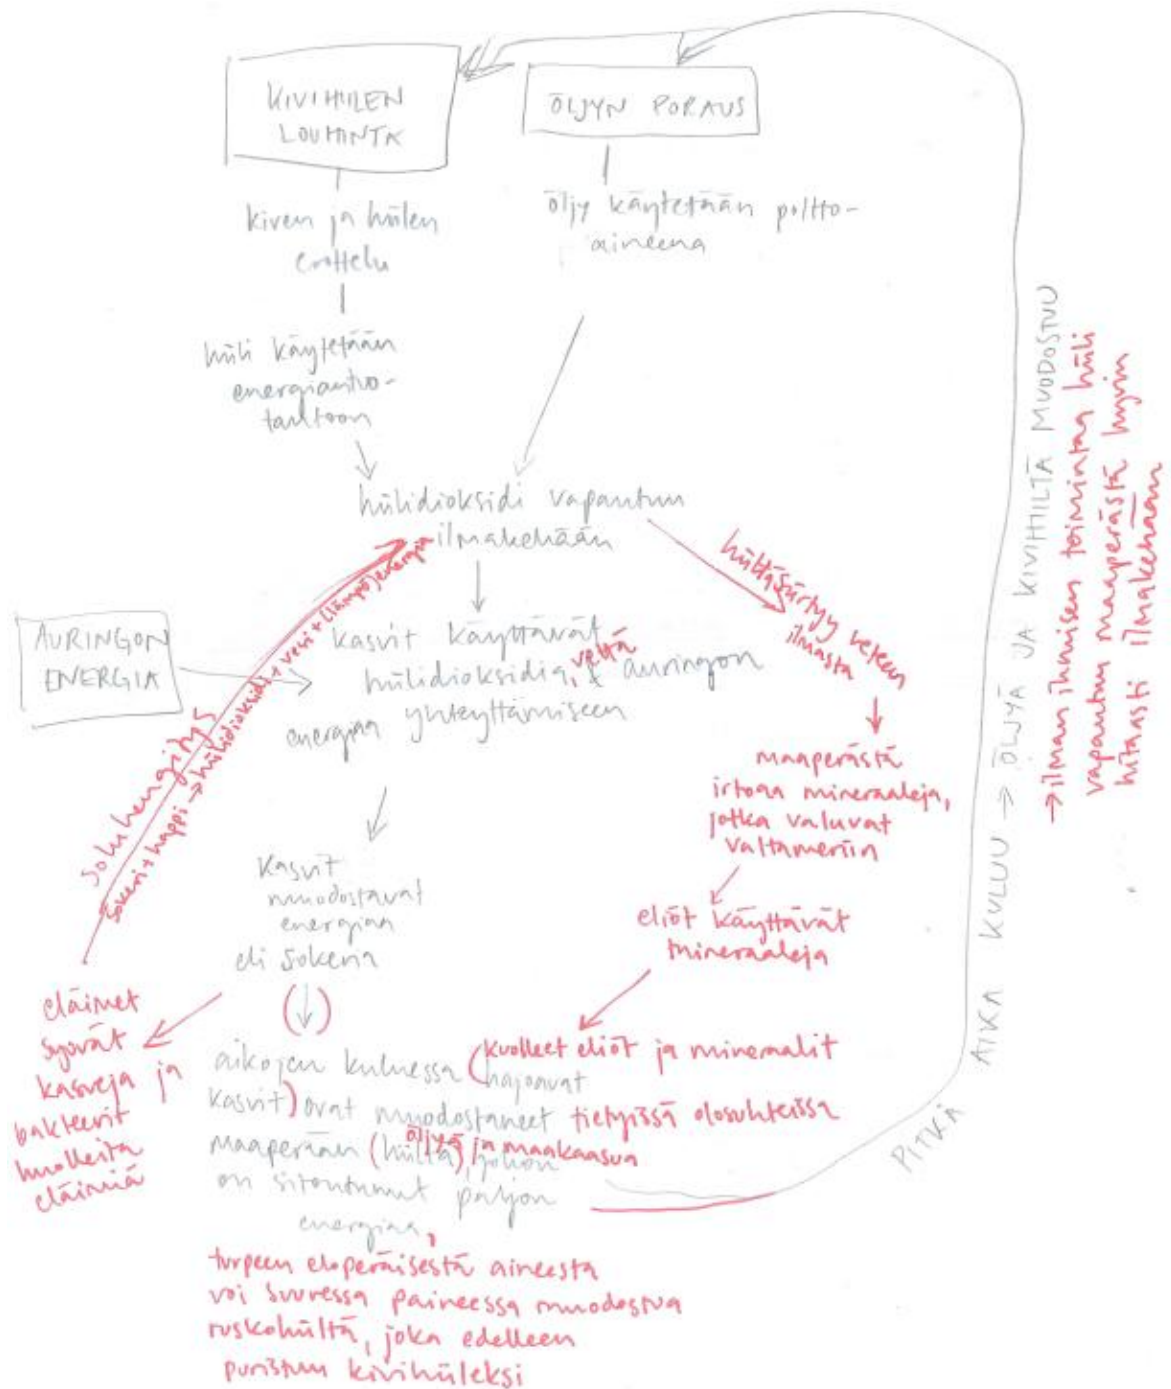 KIVIHIILEN
LOUHINTA
ÖLJYN PORAUS
kiven ja hiilen
erottelu
öljy käytetään poltto-
aineena
hiili käytetään
energiantuo-
tantoon
hiilidioksidi vapautuu
ilmakehään
hiiltä siirtyy veteen
ilmasta
AURINGON
ENERGIA
kasvit käyttävät
hiilidioksidia, vettä & auringon
energiaa yhteyttämiseen
Soluhengitys
Sokeri + happi → hiilidioksidi + vesi + (lämpö)energia
maaperästä
irtoaa mineraaleja,
jotka valuvat
valtameriin
kasvit
muodostavat
energiaa
eli sokeria
eliöt käyttävät
mineraaleja
eläimet
syövät
kasveja ja
bakteerit
kuolleita
eläimiä
aikojen kuluessa (kuolleet eliöt ja mineraalit
hajoavat
kasvit) ovat muodostaneet tietyissä olosuhteissa
maaperään (hiiltä) öljyä ja maakaasua, johon
on sitoutunut paljon
energiaa,
turpeen eloperäisestä aineesta
voi suuressa paineessa muodostua
ruskohiiltä, joka edelleen
puristuu kivihiileksi
PITKÄ AIKA KULUU → ÖLJYÄ JA KIVIHIILTÄ MUODOSTUU
→ ilman ihmisen toimintaa hiili
vapautuu maaperästä hyvin
hitaasti ilmakehään